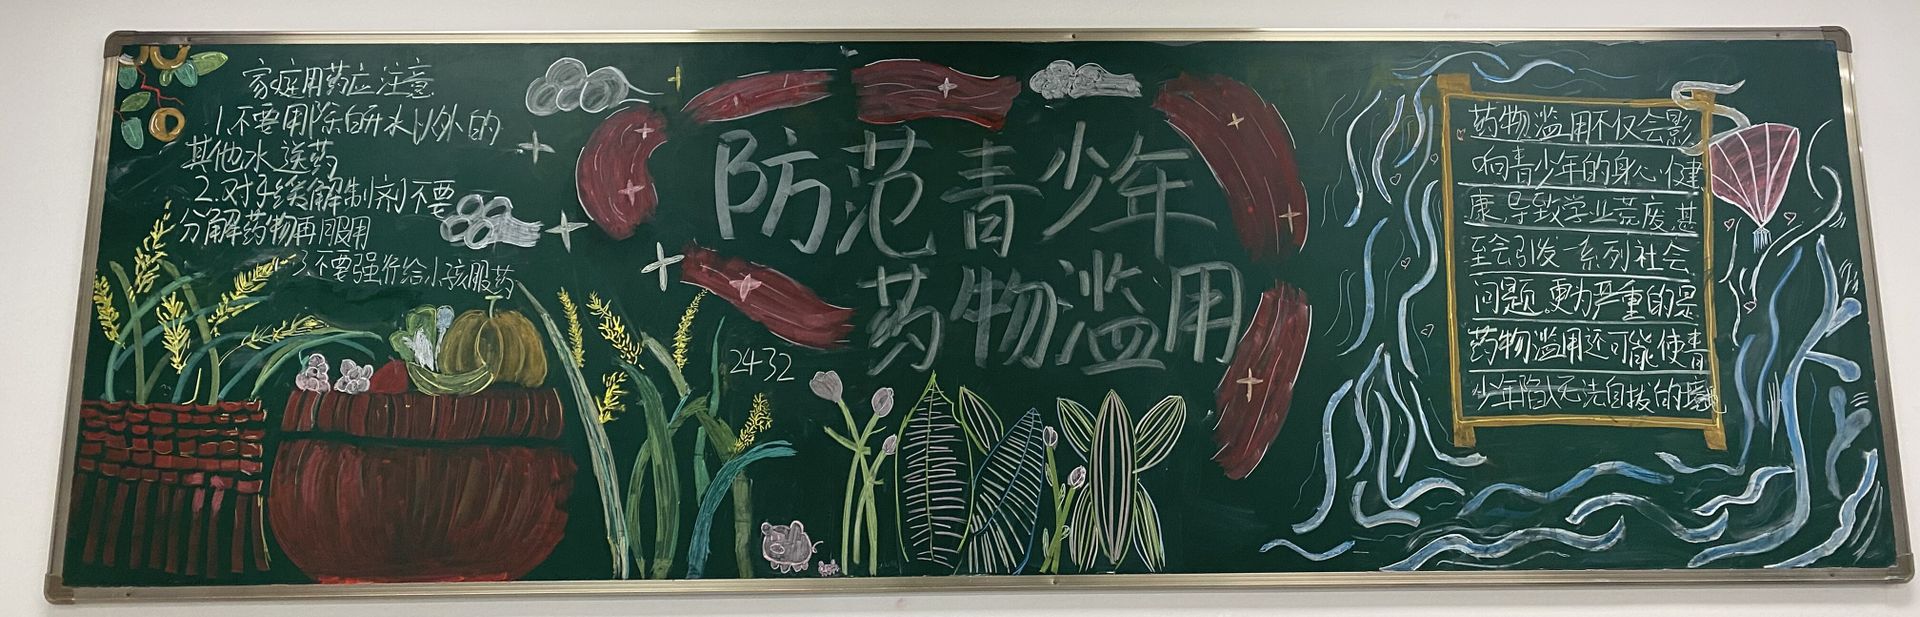 家庭用药应注意
1.不要用除白开水以外的
其他水送药
2.对于缓解制剂不要
分解药物再服用
3.不要强行给小孩服药
防范青少年
药物滥用
2432
药物滥用不仅会影
响青少年的身心健
康,导致学业荒废,甚
至会引发一系列社会
问题.更为严重的是
药物滥用还可能使青
少年陷入无法自拔的境地